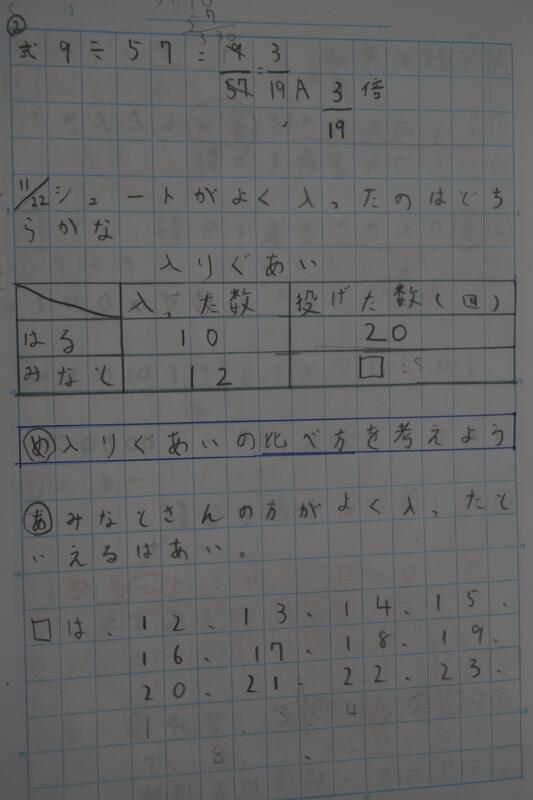 ②
式 9÷57=9/57=3/19 A 3/19倍
11/22 シュートがよく入ったのはどち
らかな
入りぐあい
入った数 投げた数(回)
はる 10 20
みなと 12 □ 25
め 入りぐあいの比べ方を考えよう
あ みなとさんの方がよく入ったと
いえるばあい。
□は、12、13、14、15、
16、17、18、19、
20、21、22、23、